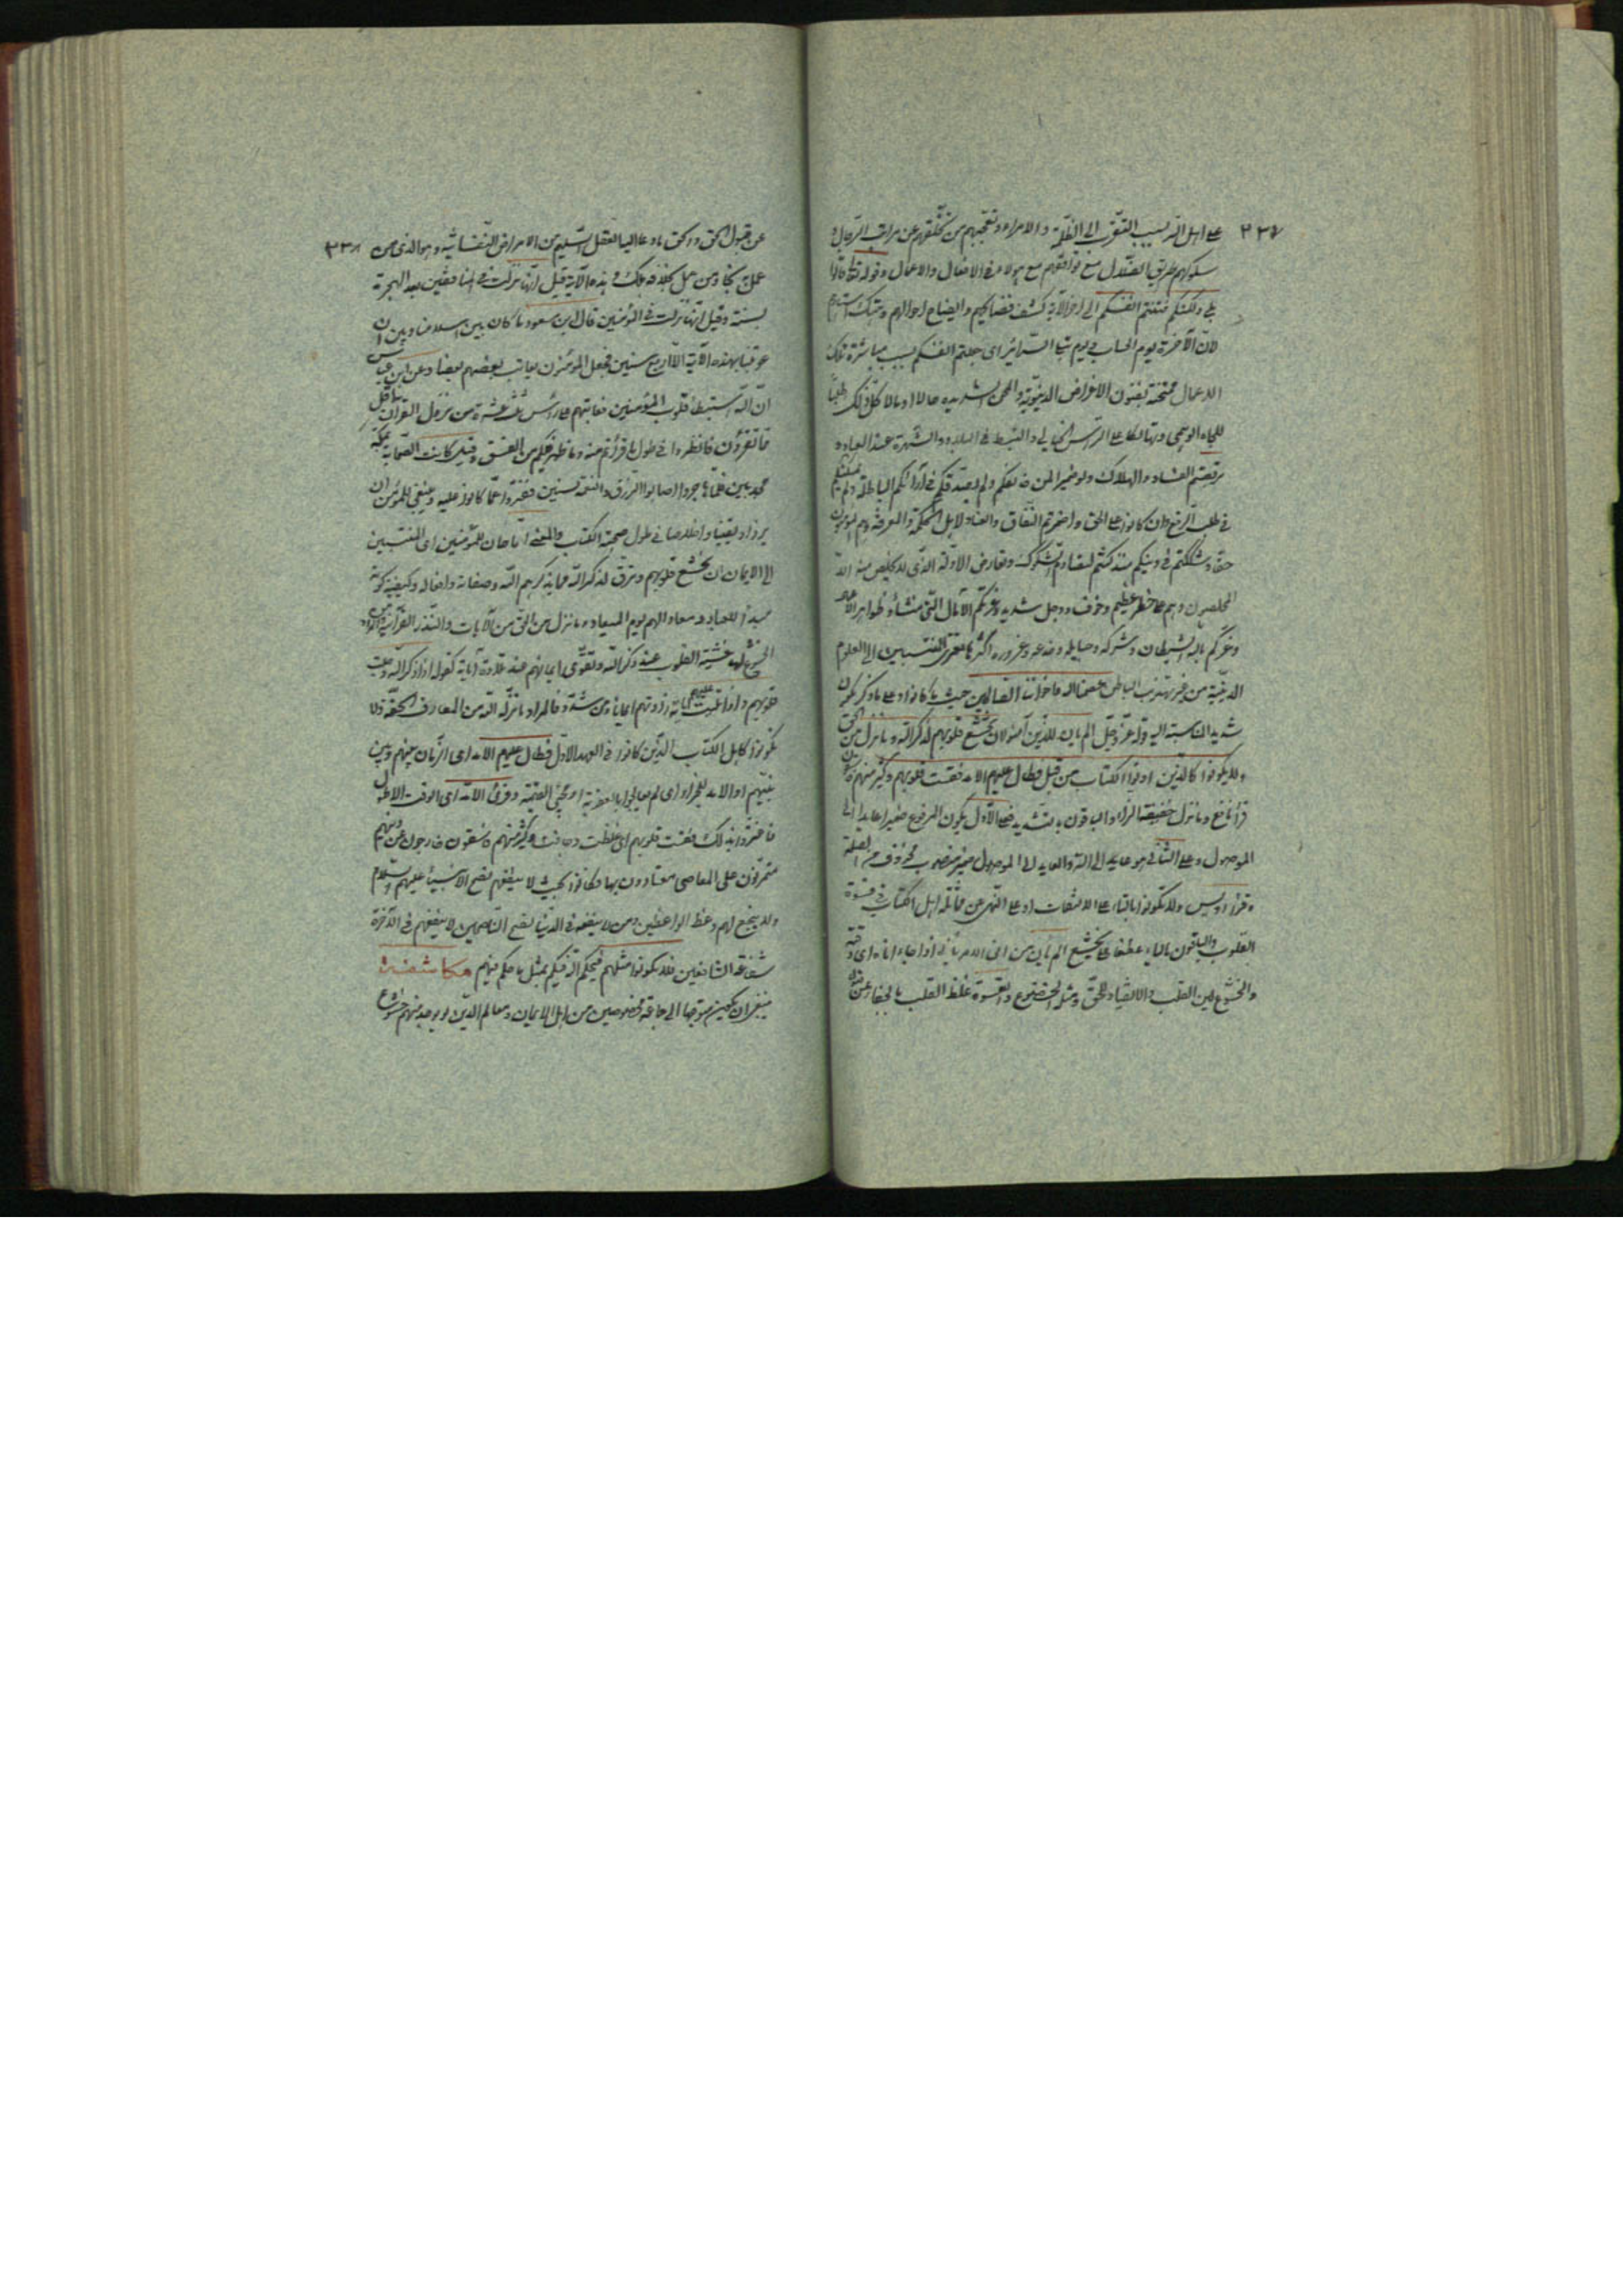 ٣٣٧
على اهل الله بسبب التقرب الى الظلمة والامراء وتعجبهم من تخلفهم عن مراتب الرجال و
سلوكهم طريق الضلال مع توافقهم مع هؤلاء في الافعال والاعمال وقوله تعالى قالوا
بلى ولكنكم فتنتم انفسكم الى اخر الآية كشف فضائحهم وايضاح احوالهم وهتك
لان الآخرة يوم الحساب ويوم تبلى السرائر اى جعلتم انفسكم بسبب مباشرة تلك
الاعمال ممتحنة بفنون الاغراض الدنيوية والمحن الشديدة حالا او مالا كل ذلك طلبا
للجاه الوهمي وتهالكا على الترأس الخيالي والتبسط في البلاد والشهرة عند العباد و
تربصتم الفساد والهلاك ولو ضميرا لمن خالفكم ولم يصدقكم في آرائكم الباطلة ولم
في طلب الرفع وان كانوا على الحق واضمرتم النفاق والعناد لاهل الحكمة والمعرفة وهم المؤمنون
حقا وشككتم في دينكم منذ كنتم لتصادم الشكوك وتعارض الادلة الذي لا يخلص منه الا
المخلصون وهم على خطر عظيم وخوف ووجل شديد وغرتكم الآمال التي منشأها ظواهر الاعمال
وغركم بالله الشيطان وشركه وحبايله وخدعه وغروره اكثر ما يعترى المنتسبين الى العلوم
الدينية من غير تهذيب الباطن عصمنا الله واخواننا الصالحين حيث ما كانوا وعلى ما ذكر يكون
شديد المناسبة اليه قوله عز وجل الم يأن للذين آمنوا ان تخشع قلوبهم لذكر الله وما نزل من الحق
ولا يكونوا كالذين اوتوا الكتاب من قبل فطال عليهم الامد فقست قلوبهم وكثير منهم فاسقون
قرأ نافع وما نزل خفيفة الزاء والباقون بالتشديد فعلى الاول يكون المرفوع ضميرا عايدا الى
الموصول وعلى الثاني هو عايد الى الله والعايد الى الموصول ضمير منصوب محذوف من الصلة
وقرأ اويس ولا تكونوا بالتاء على الالتفات او على النهى عن مماثلة اهل الكتاب في قسوة
القلوب والباقون بالياء عطفا على تخشع الم يأن من انى الامر يأنى اذا جاء اناه اى وقته
والخشوع لين القلب والانقياد للحق ومثله الخضوع والقسوة غلظ القلب بالجفاء عن
٣٣٨
عن قبول الحق والحق ما دعا اليه العقل السليم من الامراض النفسانية وهو الذى من
عمل به نجا ومن عمل بخلافه هلك وهذه الآية قيل انها نزلت في المنافقين بعد الهجرة
بسنة وقيل انها نزلت في المؤمنين قال ابن مسعود ما كان بين اسلامنا وبين ان
عوتبنا بهذه الآية الا اربع سنين فجعل المؤمنون يعاتب بعضهم بعضا وعن ابن عباس
ان الله استبطأ قلوب المؤمنين فعاتبهم على رأس ثلث عشرة من نزول القرآن
ما تقرؤن فانظروا في طول ما قرأتم منه وما ظهر فيكم من الفسق وقيل كانت الصحابة بمكة
مجدبين فلما هاجروا اصابوا الرزق والنعمة سنين ففتروا عما كانوا عليه وينبغى للمؤمن ان
يزداد يقينا واخلاصا في طول صحبة الكتاب والمعنى اما حان للمؤمنين اى المنتسبين
الى الايمان ان تخشع قلوبهم وترق لذكر الله مما يذكرهم الله وصفاته وافعاله وكيفية كونه
مبدأ للعباد ومعادا لهم يوم الميعاد وما نزل من الحق من الآيات والنذر القرآنية
خشية القلوب عند ذكر الله وتقوى ايمانهم عند تلاوة آياته كقوله اذا ذكر الله وجلت
قلوبهم واذا تليت عليهم آياته زادتهم ايمانا ومن شدد فالمراد ما نزله الله من المعارف الحقة ولا
يكونوا كاهل الكتاب الذين كانوا في العهد الاول فطال عليهم الامد اى الزمان بينهم وبين
نبيهم او الامد للجزاء اى لم يعاجلوا بالعقوبة وقرئ الامد اى الوقت الاطول
فاغتروا بذلك فقست قلوبهم اى غلظت وجافت وكثير منهم فاسقون خارجون عن دينهم
متمرنون على المعاصى معتادون بها وكانوا بحيث لا ينفعهم نصح الانبياء عليهم السلام
ولا ينجع لهم وعظ الواعظين ومن لا ينفعه في الدنيا نصح الناصحين لا ينفعهم في الآخرة
شفاعة الشافعين فلا يكونوا مثلهم فيحكم الله فيكم بمثل ما حكم فيهم مكاشفة
ينبغى ان يكون متوجها الى جماعة مخصوصين من اهل الايمان ومعالم الدين لم يوجد منهم خشوع